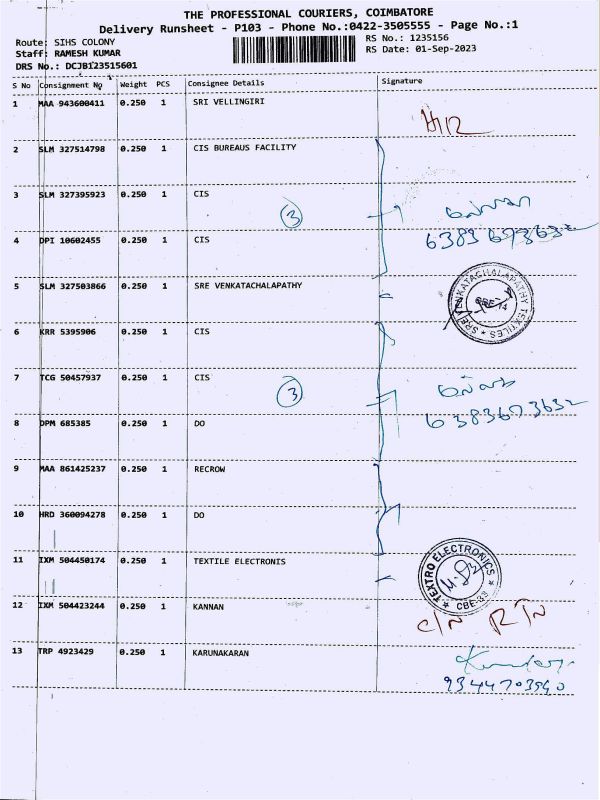 THE PROFESSIONAL COURIERS, COIMBATORE
Delivery Runsheet - P103 - Phone No.:0422-3505555 - Page No.:1
Route: SIHS COLONY
RS No.: 1235156
Staff: RAMESH KUMAR
RS Date: 01-Sep-2023
DRS No.: DCJB123515601
S No Consignment No Weight PCS Consignee Details Signature
1 MAA 943600411 0.250 1 SRI VELLINGIRI
2 SLM 327514798 0.250 1 CIS BUREAUS FACILITY
3 SLM 327395923 0.250 1 CIS
3
4 DPI 10602455 0.250 1 CIS
5 SLM 327503866 0.250 1 SRE VENKATACHALAPATHY
SRE VENKATACHALAPATHY TEXTILES
6 KRR 5395906 0.250 1 CIS
7 TCG 50457937 0.250 1 CIS
3
6383673632
8 DPM 685385 0.250 1 DO
9 MAA 861425237 0.250 1 RECROW
10 HRD 360094278 0.250 1 DO
11 IXM 504450174 0.250 1 TEXTILE ELECTRONIS
TEXTRO ELECTRONICS
CBE-33
12 IXM 504423244 0.250 1 KANNAN
C/N RTN
13 TRP 4923429 0.250 1 KARUNAKARAN